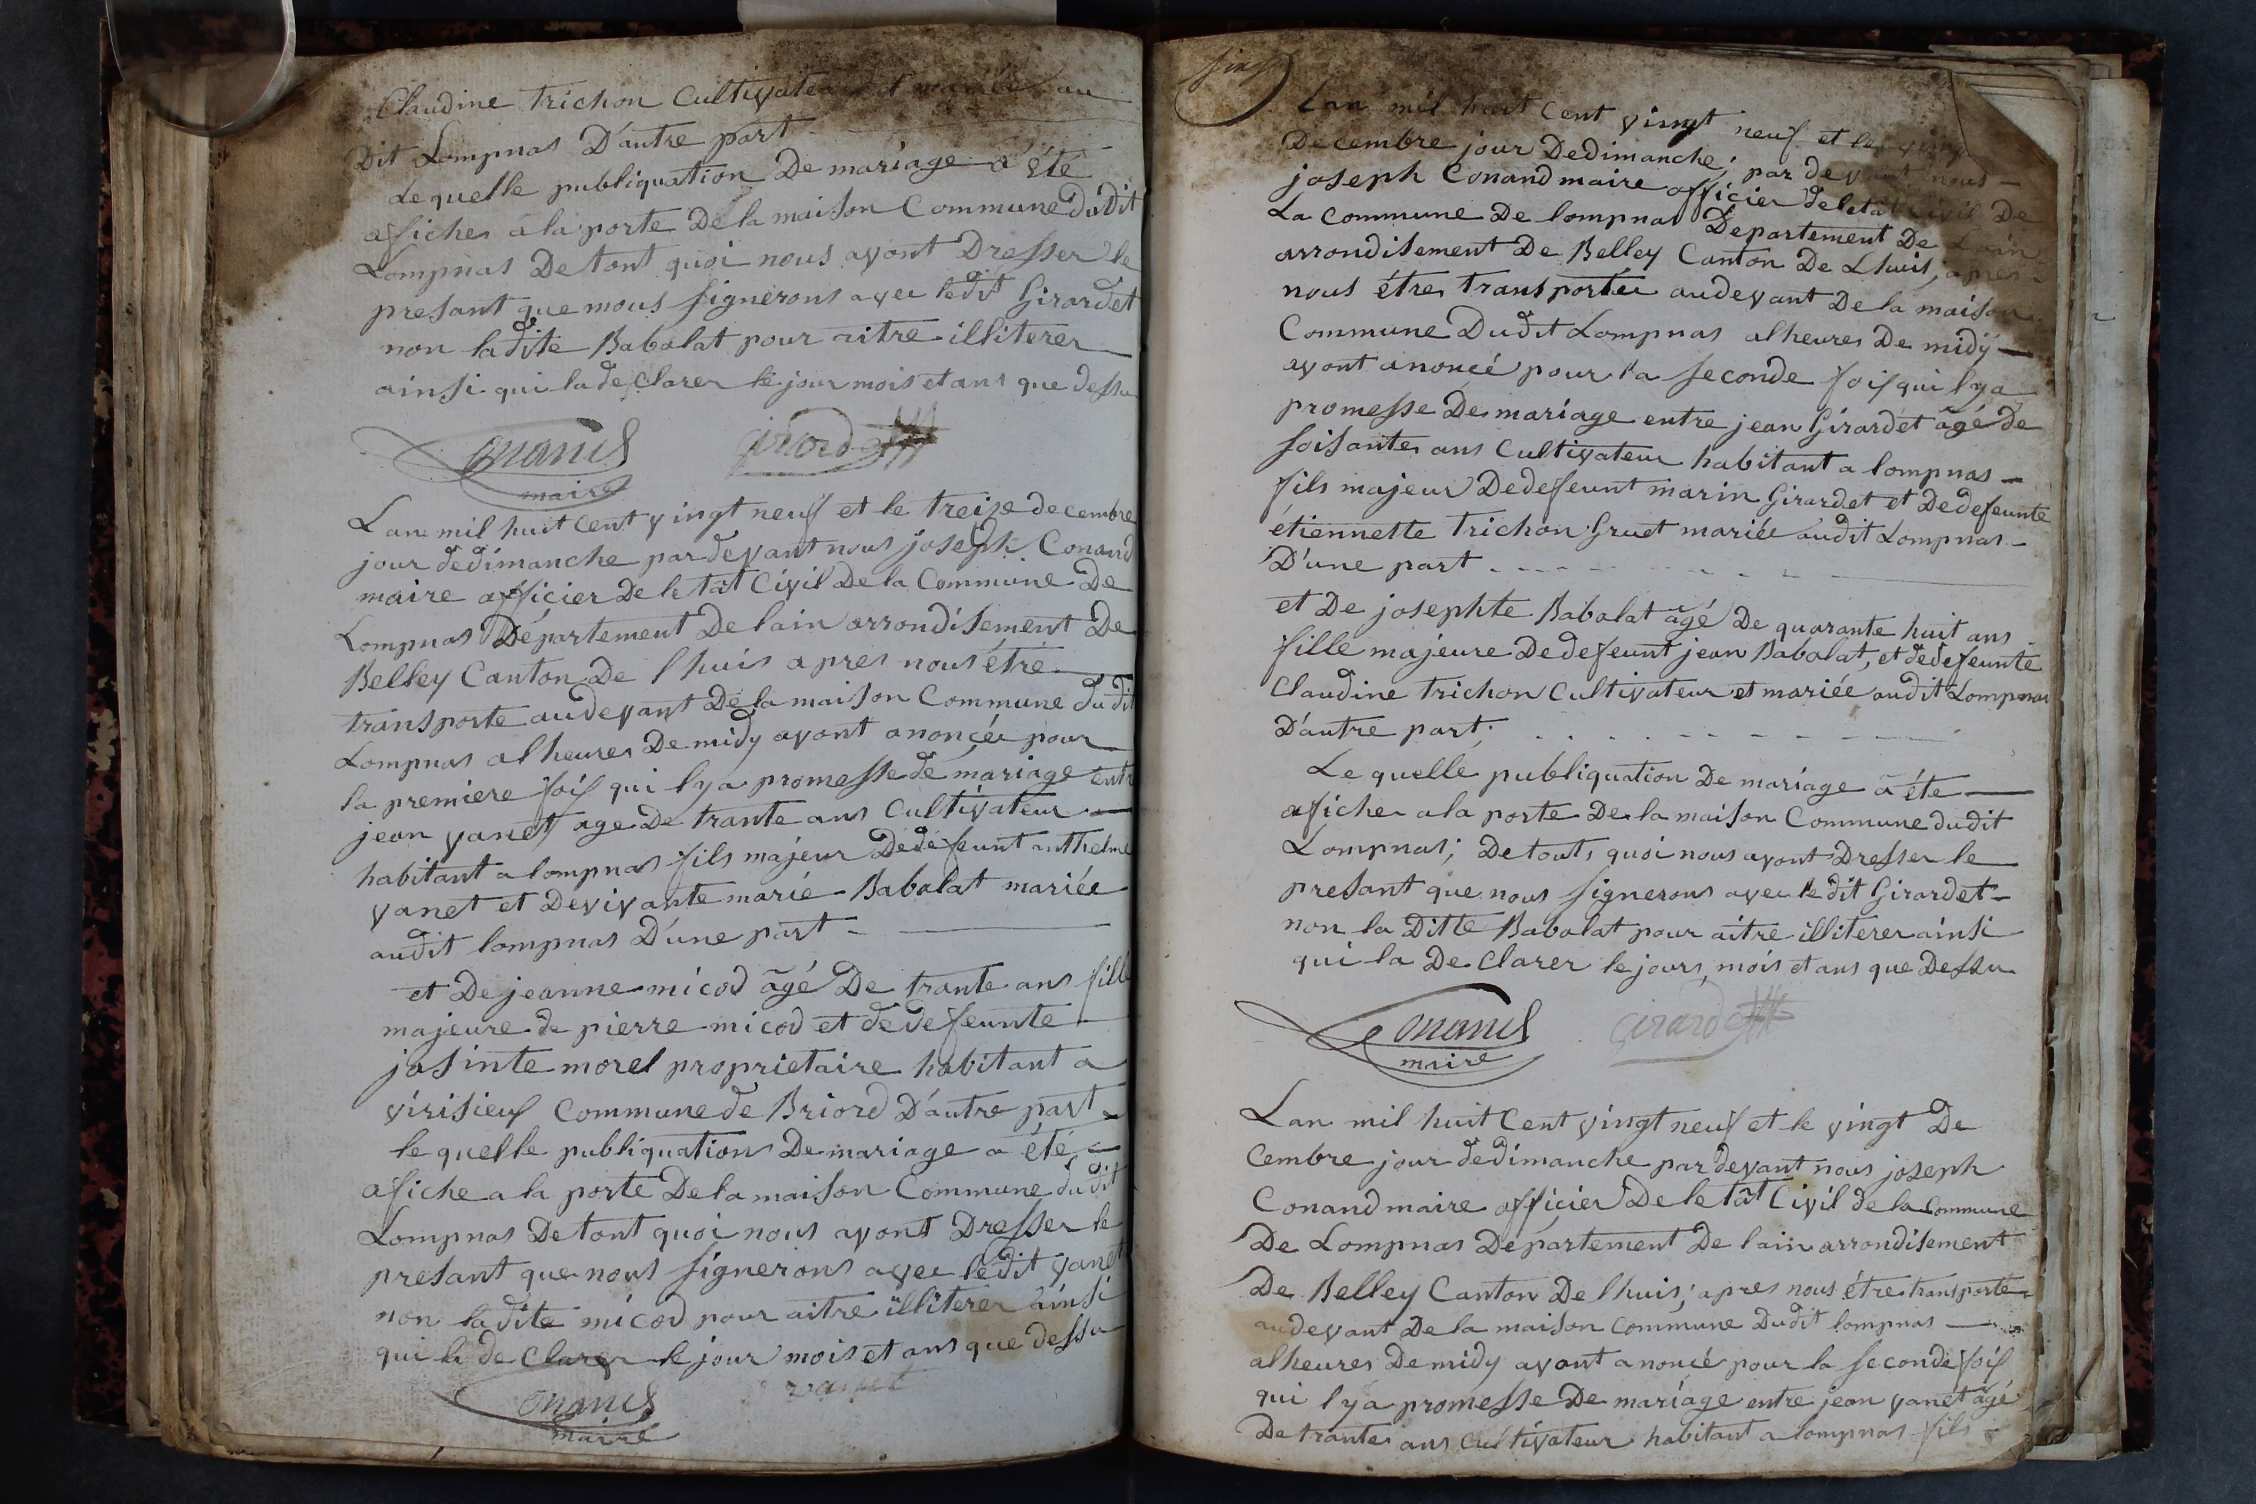 Claudine trichon Cultivateur et mariée au
Dit Lompnas D'autre part
Le quelle publiquation De mariage a été
afiches a la porte De la maison Commune du Dit
Lompnas De tout quoi nous avont Dresser le
presant que nous signerons avec le dit Girardet
non la dite Babolat pour aitre illiterer
ainsi qui la de clarer le jour mois et ans que dessu
Conand girardet
maire
Lan mil huit Cent vingt neuf et le treise decembre
jour de dimanche par devant nous joseph Conand
maire officier De le tat Civil De la Commune De
Lompnas Département De lain arrondisement De
Belley Canton De lhuis apres nous étre
transporte au devant De la maison Commune du dit
Lompnas al heures De midy avont anoncée pour
la premiere fois qui l'y a promesse de mariage entre
jean vanet age De trante ans Cultivateur
habitant a lompnas fils majeur De defeunt anthelme
vanet et De vivante marie Babolat mariée
au dit lompnas D'une part
et De jeanne micod âgé De trante ans fille
majeure de pierre micod et de defeunte
jasinte morel proprietaire habitant a
virisieuf Commune de Briord D'autre part
le quelle publiquation De mariage a été
afiche a la porte De la maison Commune du dit
Lompnas De tout quoi nous avont Dresser le
presant que nous signerons avec le dit vanet
non la dite micod pour aitre illiterer ainsi
qui la de clarer le jour mois et ans que dessu
Conand vanet
maire
Lan mil huit Cent vingt neuf et le vingt
Decembre jour De dimanche, par devant nous
joseph Conand maire officier de le tat Civil De
La Commune De lompnas Département De Lain
arrondisement De Belley Canton De Lhuis, apres
nous étres transportée au devant De la maison
Commune Du dit Lompnas al heures De midy
avont anoncé pour la seconde fois qui l'y a
promesse De mariage entre jean Girardet âgé de
soisantes ans Cultivateur habitant a lompnas
fils majeur De defeunt marin Girardet et De defeunte
étiennette Trichon Gruet mariée au dit Lompnas
D'une part
et De josephte Babolat âgé De quarante huit ans
fille majeure De defeunt jean Babolat, et de defeunte
Claudine trichon Cultivateur et mariée au dit Lompnas
D'autre part;
Le quelle publiquation De mariage a éte
afiches a la porte De la maison Commune du dit
Lompnas; De touts quoi nous avont Dresser le
presant que nous signerons avec le dit Girardet
non la Ditte Babolat pour aitre illiterer ainsi
qui la De clarer le jours, mois et ans que Dessu
Conand girardet
maire
Lan mil huit Cent vingt neuf et le vingt De
Cembre jour de dimanche par devant nous joseph
Conand maire officier De le tât Civil de la Commune
De Lompnas Département De lain arrondisement
De Belley Canton De lhuis; apres nous étre transporte
au devant De la maison Commune Du dit lompnas
al heures De midy avont anoncé pour la seconde fois
qui l'y a promesse De mariage entre jean vanet âgé
De trantes ans Cultivateur habitant a lompnas fils